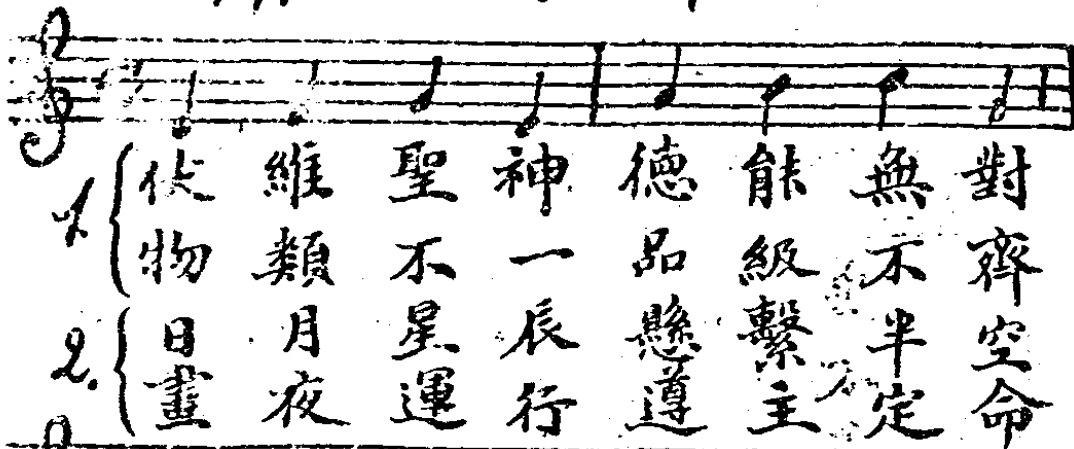 1. 伏維聖神德能無對
物類不一品級不齊
2. 日月星辰懸繫半空
晝夜運行遵主定命